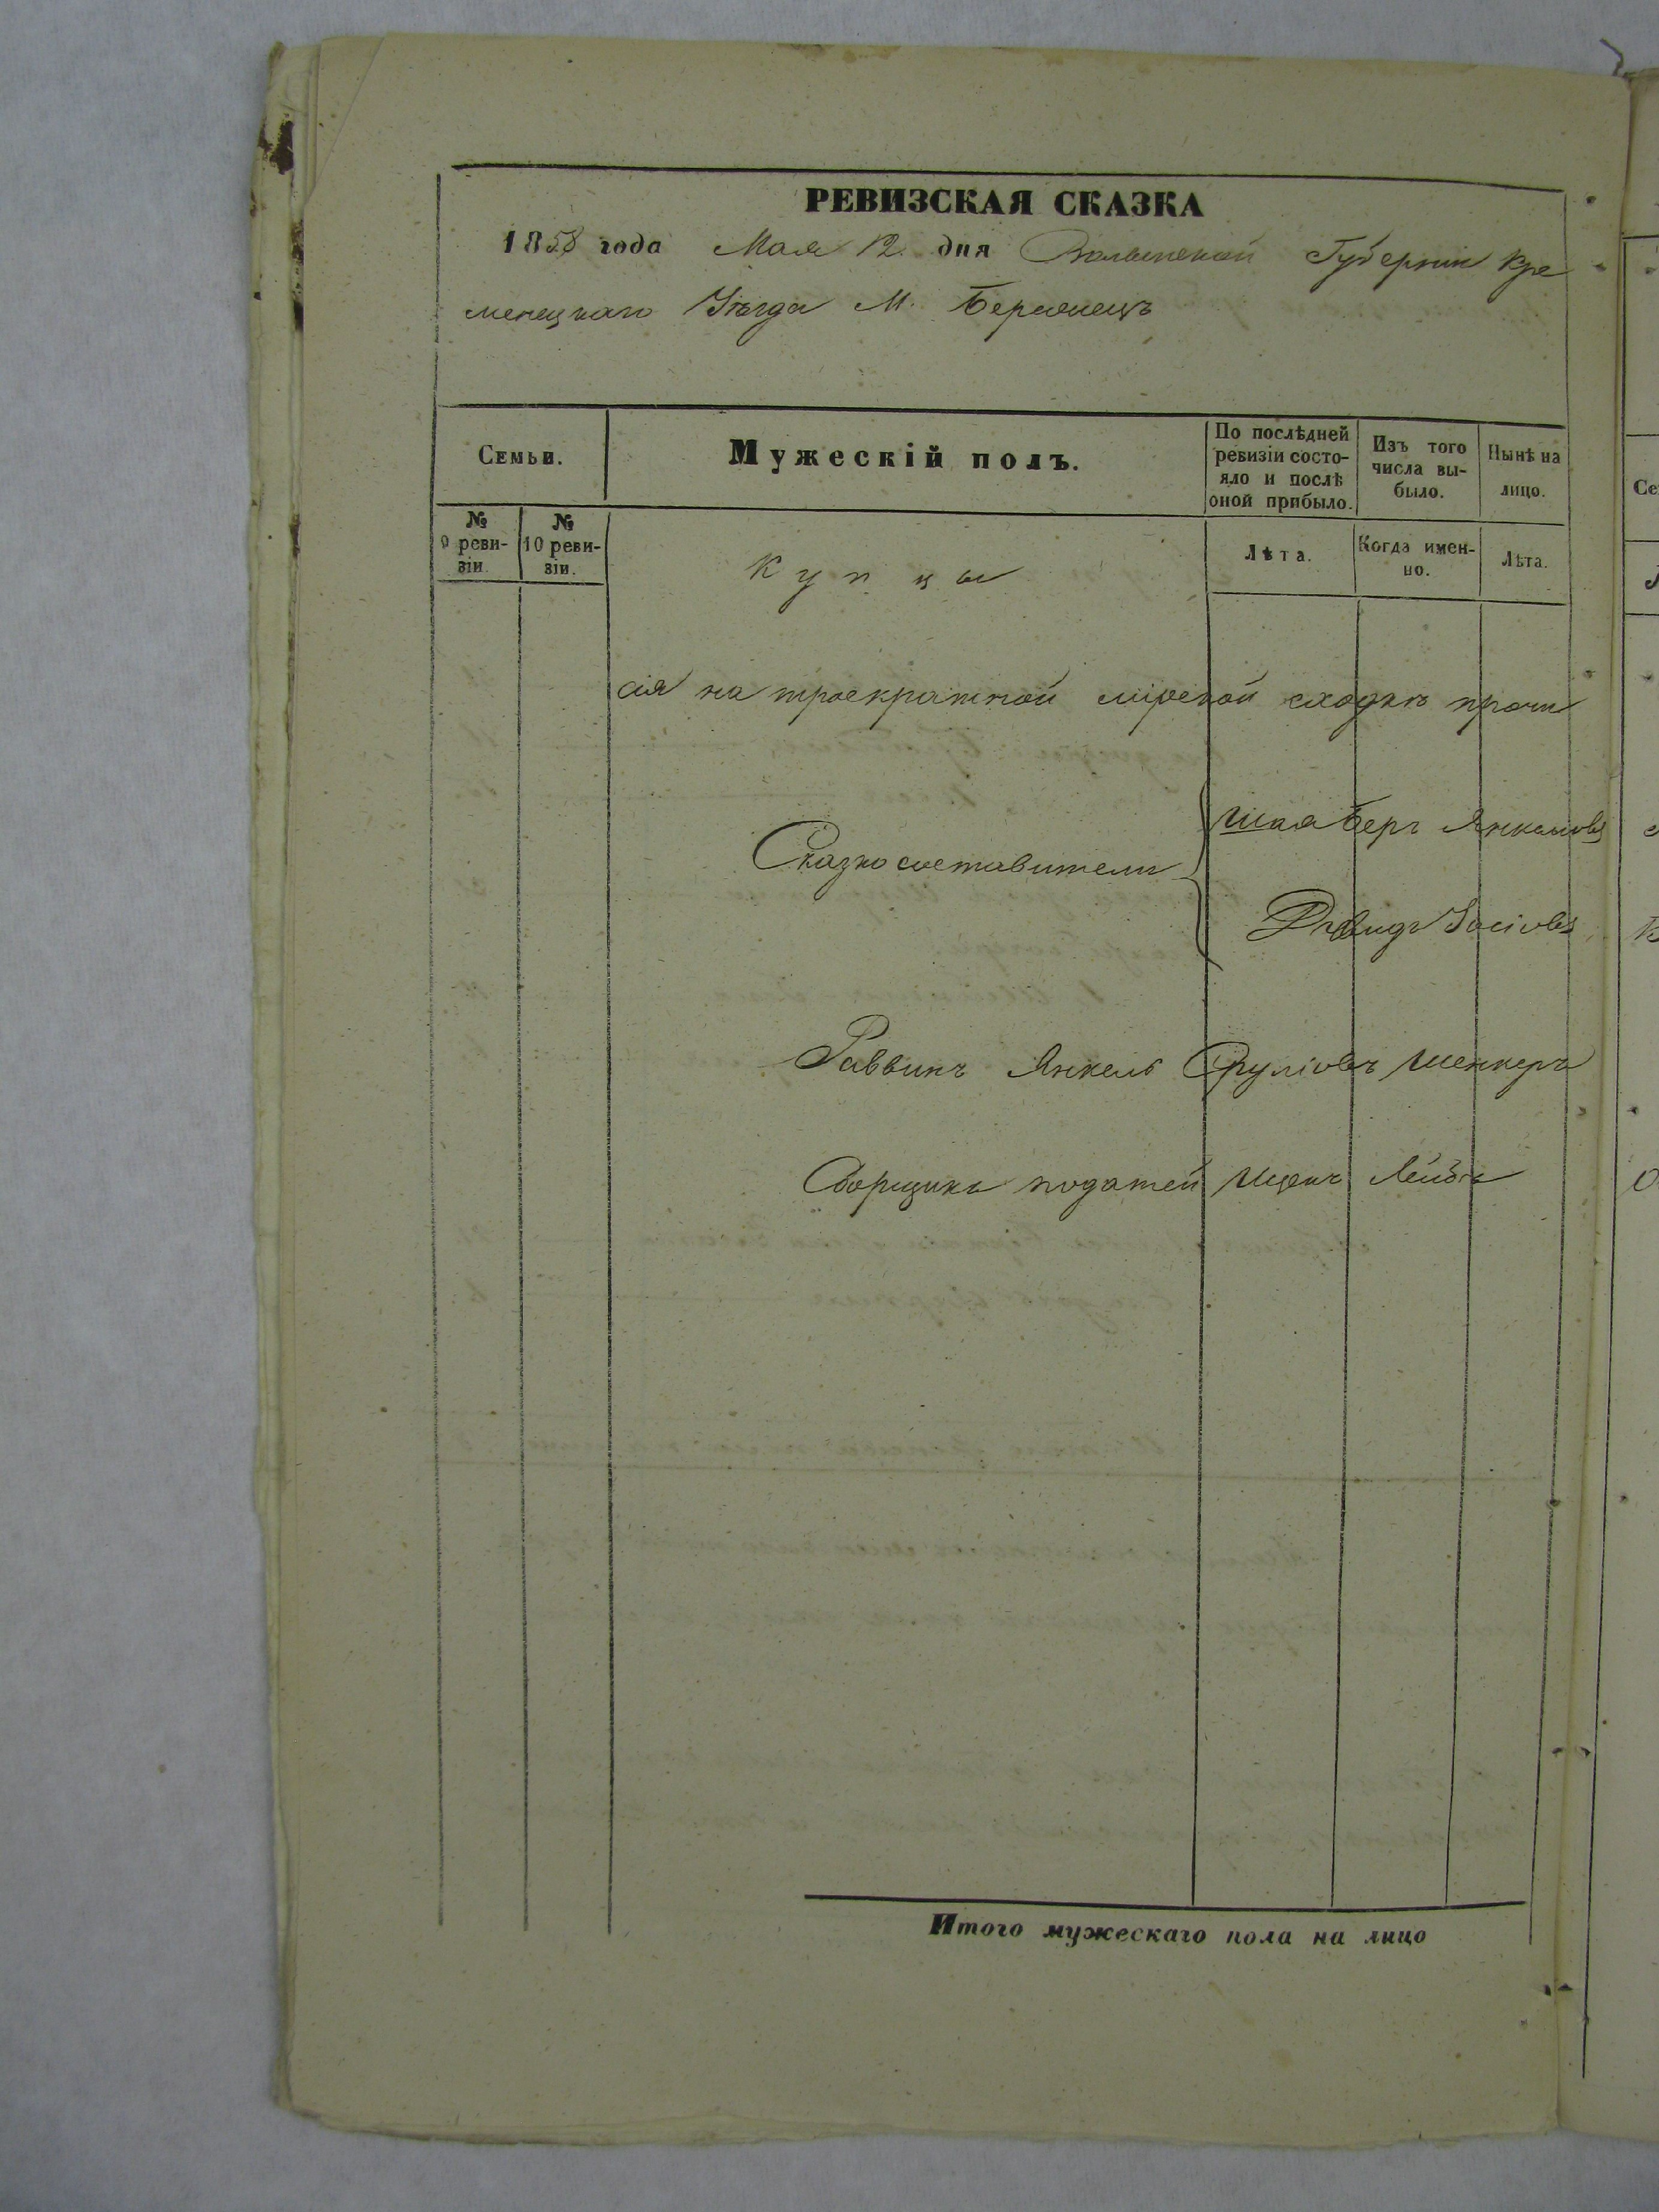 РЕВИЗСКАЯ СКАЗКА
1858 года Мая 12 дня Волынской Губернiи Кре
менецкаго Уѣзда М. Бережецъ
Семьи.
Мужескiй полъ.
По послѣдней ревизiи состо-
яло и послѣ
оной прибыло.
Изъ того
числа вы-
было.
Нынѣ на
лицо.
№
9 реви-
зiи.
№
10 реви-
зiи.
Купцы
Лѣта.
Когда имен-
но.
Лѣта.
сiя на троекратной мiрской сходкѣ прочи
Сказкосоставители
Берг Янкелiовъ
Давидъ Iосiовъ
Раввинъ Янкель Сруліовъ Шенкеръ
Сборщикъ податей Ицекъ Лейбъ
Итого мужескаго пола на лицо